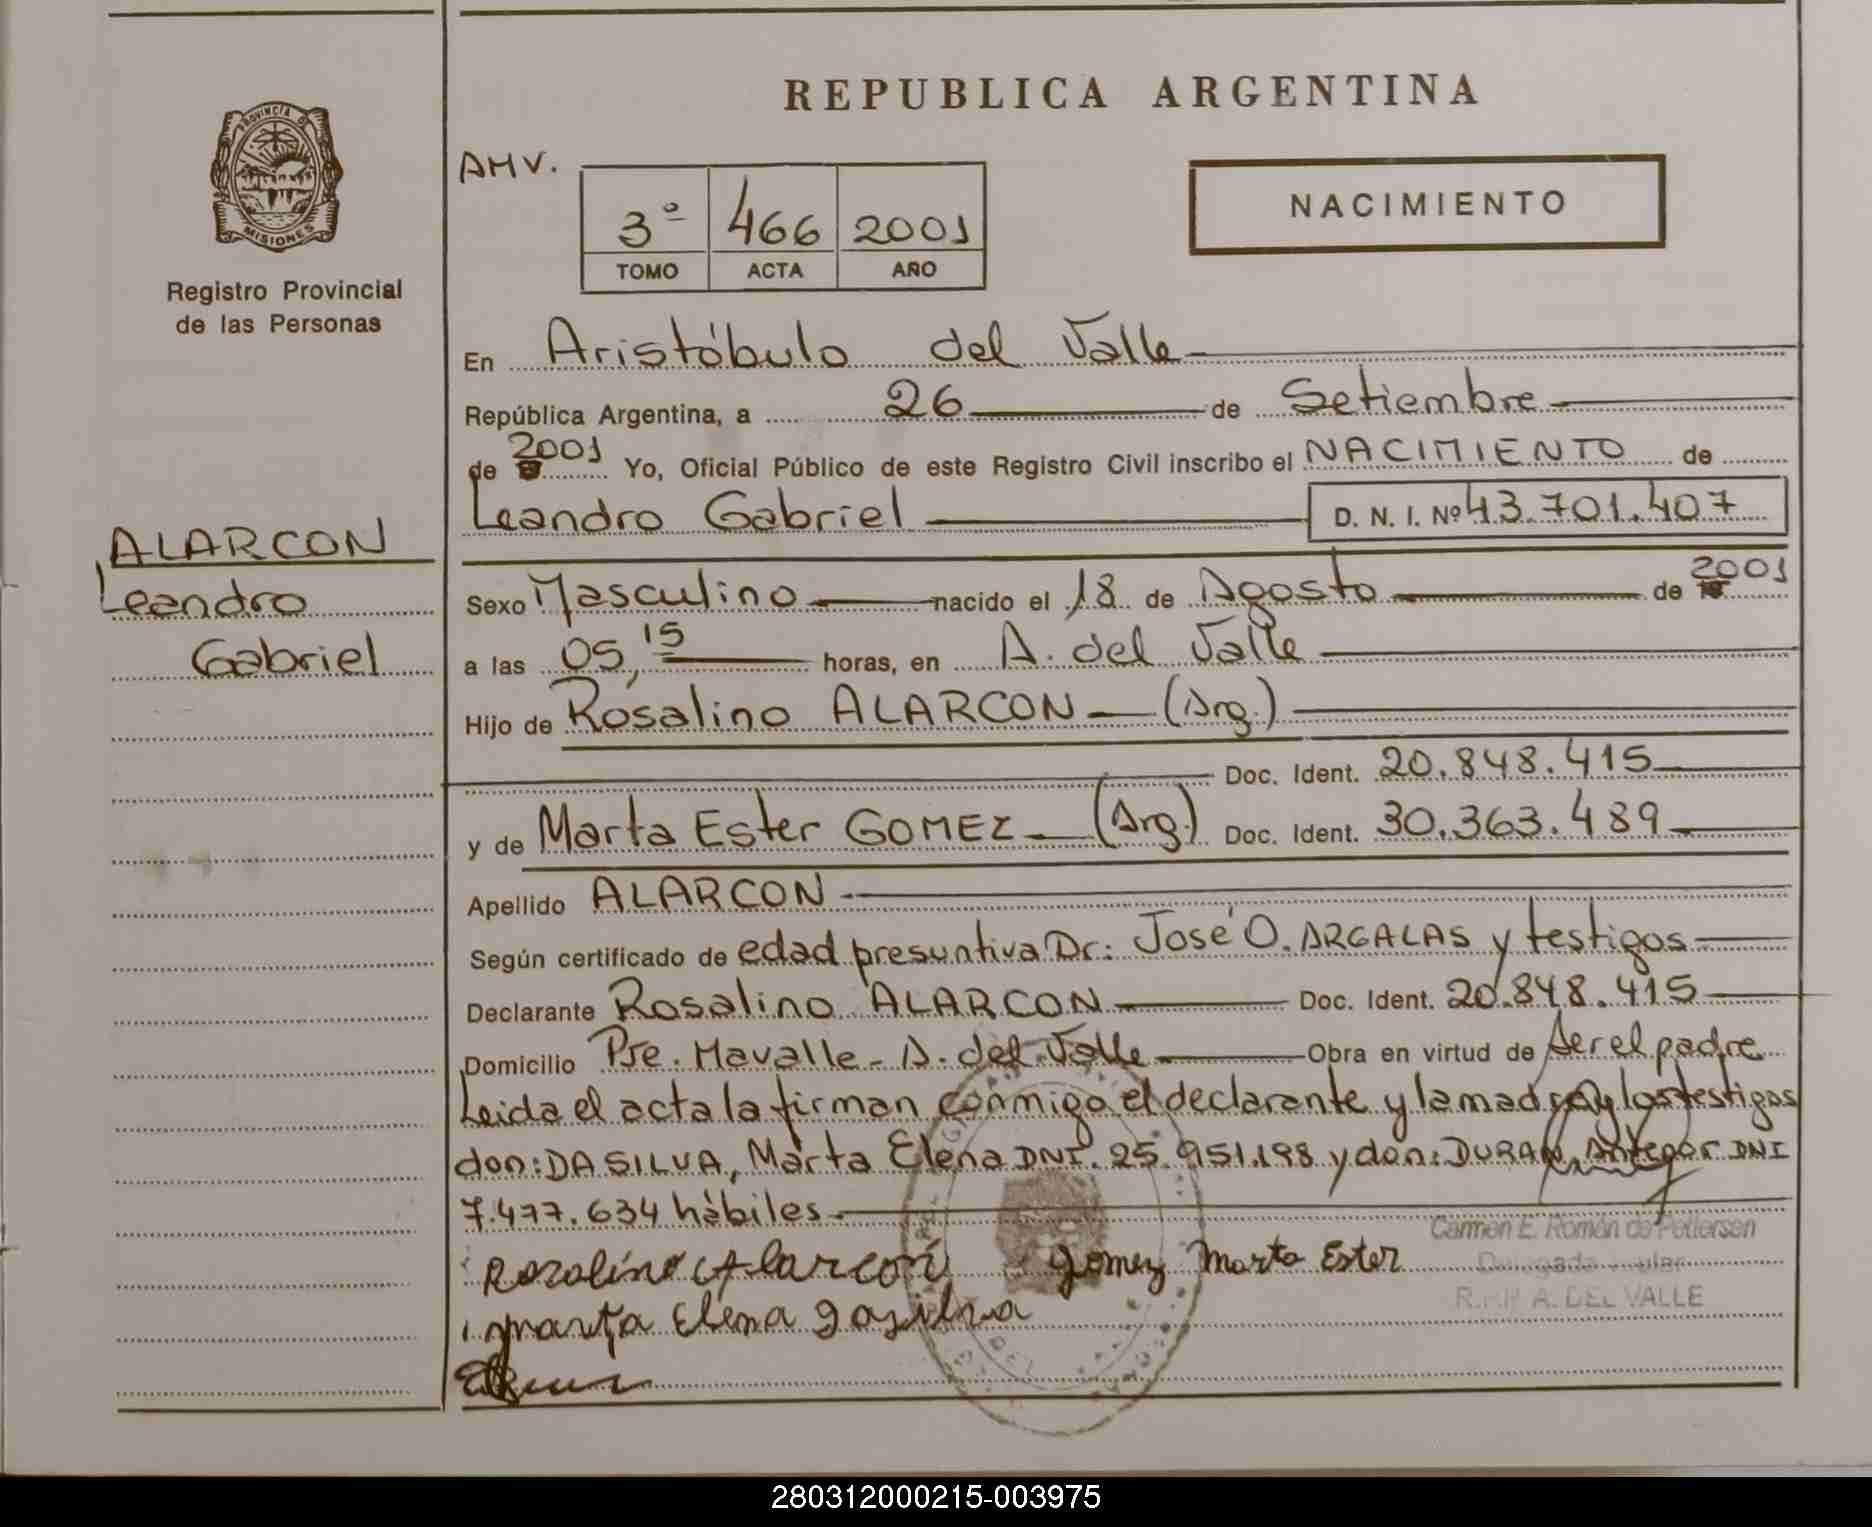 REPUBLICA ARGENTINA
PROVINCIA DE
MISIONES
Registro Provincial
de las Personas
AMV.
3º 466 2001
TOMO ACTA AÑO
NACIMIENTO
ALARCON
Leandro
Gabriel
En Aristóbulo del Valle
República Argentina, a 26 de Setiembre
de 2001 Yo, Oficial Público de este Registro Civil inscribo el NACIMIENTO de
Leandro Gabriel D. N. I. Nº 43.701.407
Sexo Masculino nacido el 18 de Agosto de 2001
a las 05,15 horas, en A. del Valle
Hijo de Rosalino ALARCON (Arg.)
Doc. Ident. 20.848.415
y de Marta Ester GOMEZ (Arg.) Doc. Ident. 30.363.489
Apellido ALARCON
Según certificado de edad presuntiva Dr: José O. ARGALAS y testigos
Declarante Rosalino ALARCON Doc. Ident. 20.848.415
Domicilio Pje. Mavalle - A. del Valle Obra en virtud de Ser el padre
Leida el acta la firman conmigo el declarante y la madre y los testigos
don: DA SILVA, Marta Elena DNI. 25.951.198 y don: DURAN, Antegor DNI
7.477.634 hábiles
Rozalino Alarcon Gomez Marta Ester
Carmen E. Román de Pettersen
Delegada Titular
R.P.P. A. DEL VALLE
Marta Elena dasilva
280312000215-003975